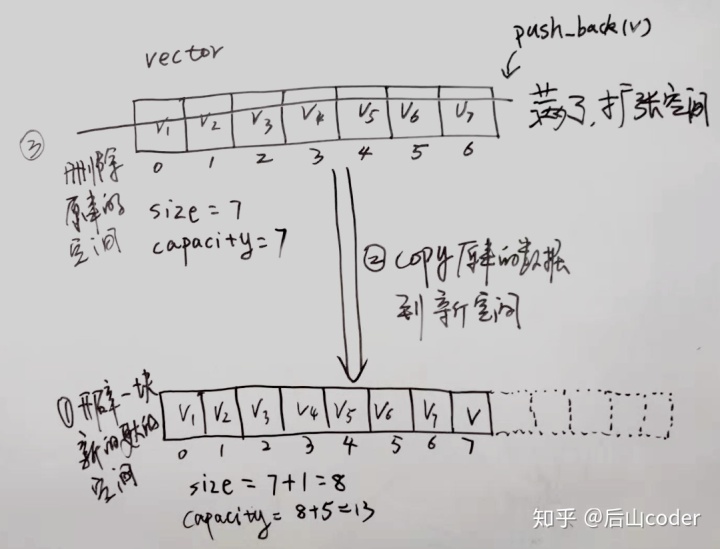 vector
push_back(v)
V₁ V₂ V₃ V₄ V₅ V₆ V₇
满了,扩张空间
0 1 2 3 4 5 6
③
删除
原来的
空间
size = 7
capacity = 7
②copy原来的数据
到新空间
①开辟一块
新的更大的
空间
V₁ V₂ V₃ V₄ V₅ V₆ V₇ V
0 1 2 3 4 5 6 7
size = 7+1=8
capacity = 8+5=13
知乎 @后山coder